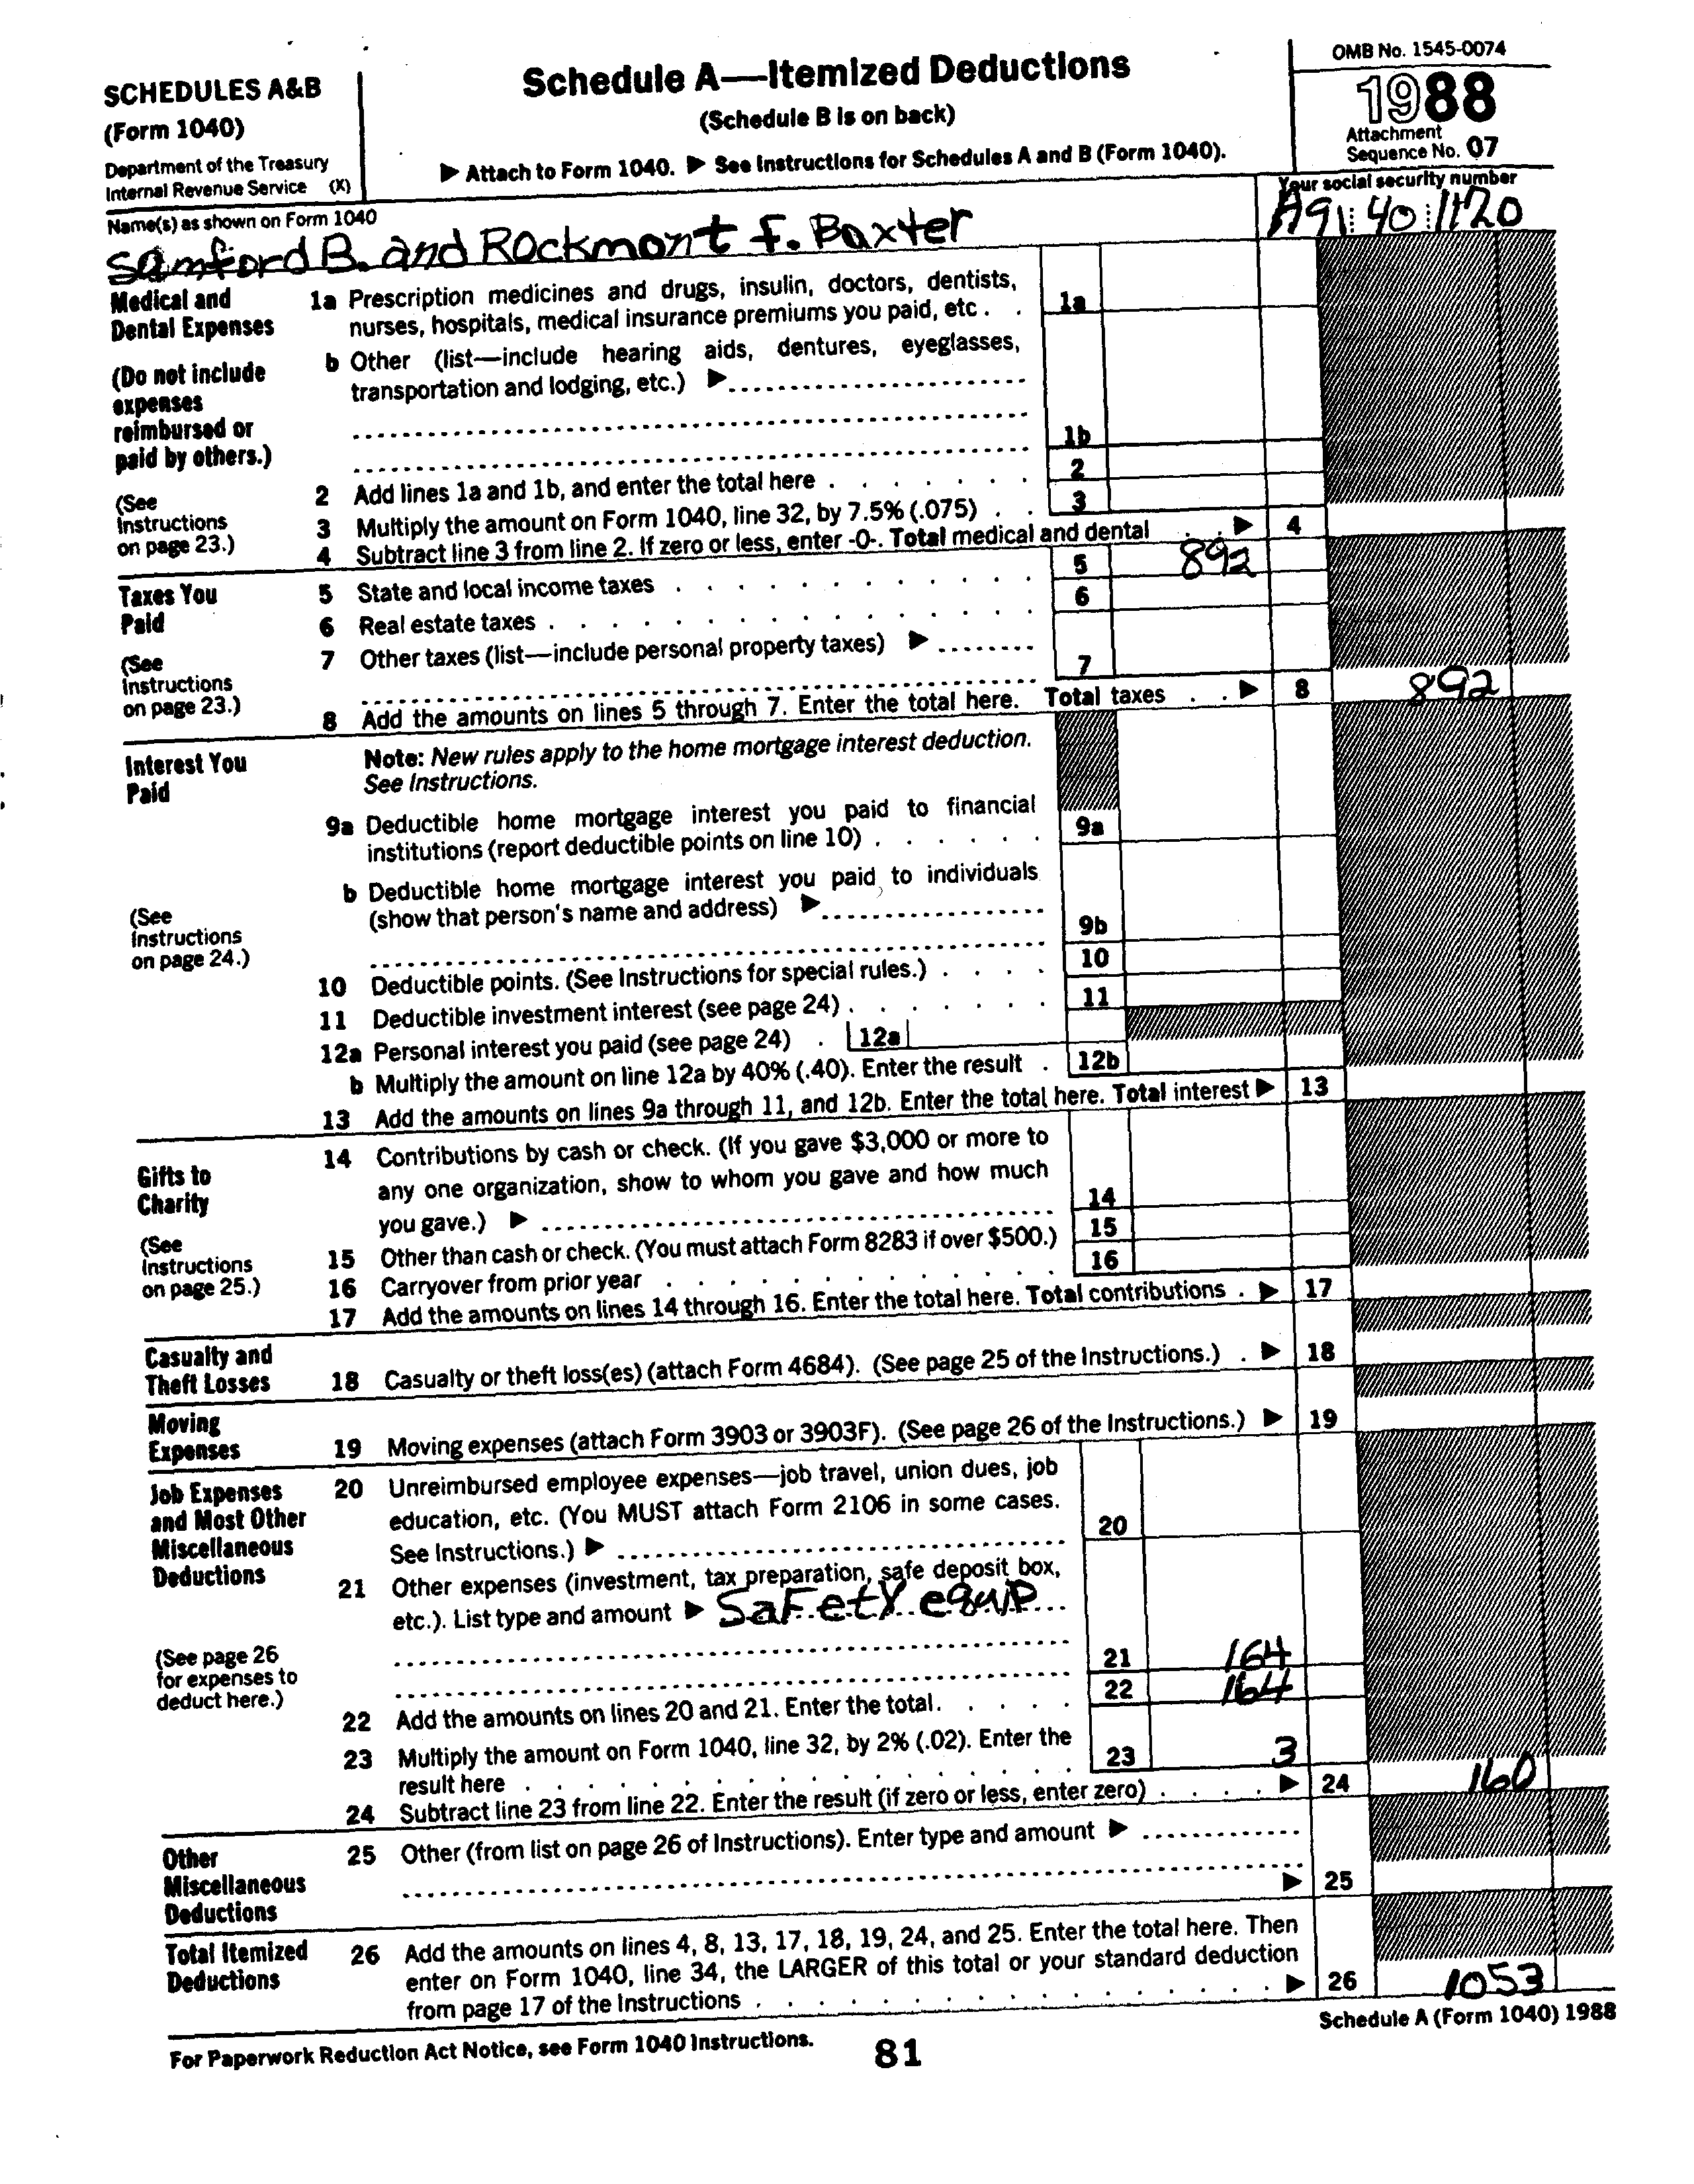 SCHEDULES A&B
(Form 1040)
Department of the Treasury
Internal Revenue Service (X)
Schedule A—Itemized Deductions
(Schedule B is on back)
▶ Attach to Form 1040. ▶ See Instructions for Schedules A and B (Form 1040).
OMB No. 1545-0074
1988
Attachment
Sequence No. 07
Name(s) as shown on Form 1040
Samford B. and Rockmont F. Baxter
Your social security number
A91 40 1120
Medical and
Dental Expenses
(Do not include
expenses
reimbursed or
paid by others.)
(See
Instructions
on page 23.)
1a Prescription medicines and drugs, insulin, doctors, dentists,
nurses, hospitals, medical insurance premiums you paid, etc . . 1a
b Other (list—include hearing aids, dentures, eyeglasses,
transportation and lodging, etc.) ▶
1b
2 Add lines 1a and 1b, and enter the total here . . . . . . . 2
3 Multiply the amount on Form 1040, line 32, by 7.5% (.075) . . 3
4 Subtract line 3 from line 2. If zero or less, enter -0-. Total medical and dental . . ▶ 4
Taxes You
Paid
(See
Instructions
on page 23.)
5 State and local income taxes . . . . . . . . . . . 5 892
6 Real estate taxes . . . . . . . . . . . . . . 6
7 Other taxes (list—include personal property taxes) ▶
7
8 Add the amounts on lines 5 through 7. Enter the total here. Total taxes . . ▶ 8 892
Interest You
Paid
(See
Instructions
on page 24.)
Note: New rules apply to the home mortgage interest deduction.
See Instructions.
9a Deductible home mortgage interest you paid to financial
institutions (report deductible points on line 10) . . . . . . 9a
b Deductible home mortgage interest you paid to individuals
(show that person's name and address) ▶
9b
10 Deductible points. (See Instructions for special rules.) . . . . 10
11 Deductible investment interest (see page 24) . . . . . . . 11
12a Personal interest you paid (see page 24) . 12a
b Multiply the amount on line 12a by 40% (.40). Enter the result . 12b
13 Add the amounts on lines 9a through 11, and 12b. Enter the total here. Total interest ▶ 13
Gifts to
Charity
(See
Instructions
on page 25.)
14 Contributions by cash or check. (If you gave $3,000 or more to
any one organization, show to whom you gave and how much
you gave.) ▶ 14
15 Other than cash or check. (You must attach Form 8283 if over $500.) 15
16 Carryover from prior year . . . . . . . . . . . . 16
17 Add the amounts on lines 14 through 16. Enter the total here. Total contributions . ▶ 17
Casualty and
Theft Losses
18 Casualty or theft loss(es) (attach Form 4684). (See page 25 of the Instructions.) . ▶ 18
Moving
Expenses
19 Moving expenses (attach Form 3903 or 3903F). (See page 26 of the Instructions.) ▶ 19
Job Expenses
and Most Other
Miscellaneous
Deductions
(See page 26
for expenses to
deduct here.)
20 Unreimbursed employee expenses—job travel, union dues, job
education, etc. (You MUST attach Form 2106 in some cases.
See Instructions.) ▶ 20
21 Other expenses (investment, tax preparation, safe deposit box,
etc.). List type and amount ▶ SaFetY equip
21 164
22 Add the amounts on lines 20 and 21. Enter the total. . . . . 22 164
23 Multiply the amount on Form 1040, line 32, by 2% (.02). Enter the
result here . . . . . . . . . . . . . . . . 23 3
24 Subtract line 23 from line 22. Enter the result (if zero or less, enter zero) . . . . ▶ 24 160
Other
Miscellaneous
Deductions
25 Other (from list on page 26 of Instructions). Enter type and amount ▶
▶ 25
Total Itemized
Deductions
26 Add the amounts on lines 4, 8, 13, 17, 18, 19, 24, and 25. Enter the total here. Then
enter on Form 1040, line 34, the LARGER of this total or your standard deduction
from page 17 of the Instructions . . . . . . . . . . . . . . . ▶ 26 1053
For Paperwork Reduction Act Notice, see Form 1040 Instructions.
81
Schedule A (Form 1040) 1988